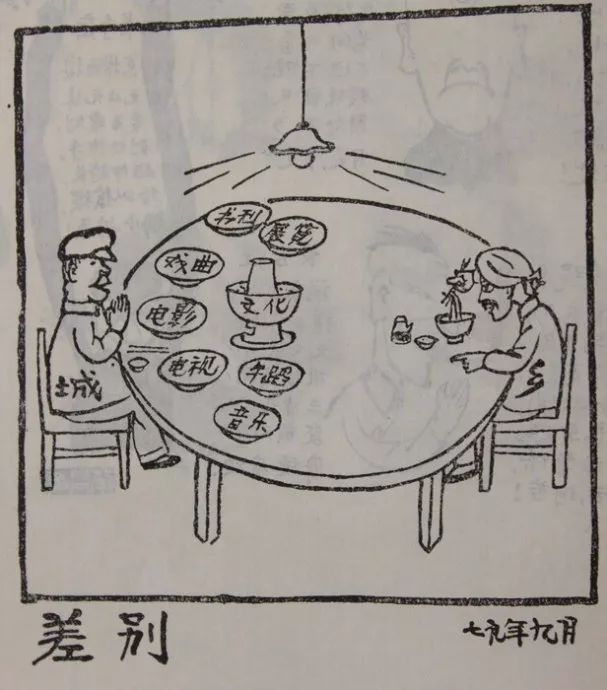 书刊
展览
戏曲
文化
电影
电视
午蹈
音乐
城
乡
差别
七九年九月